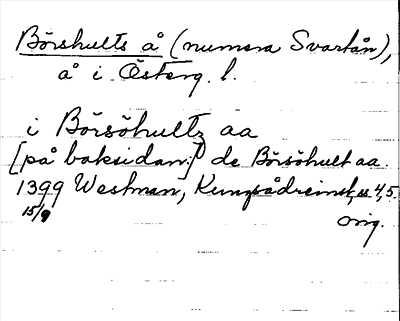 Börshults å (numera Svartån),
å i Österg. l.
i Börsöhultz aa
[på baksidan:] de Börsöhult aa.
1399 Westman, Kungsådreinst, s. 4,5.
15/9
orig.